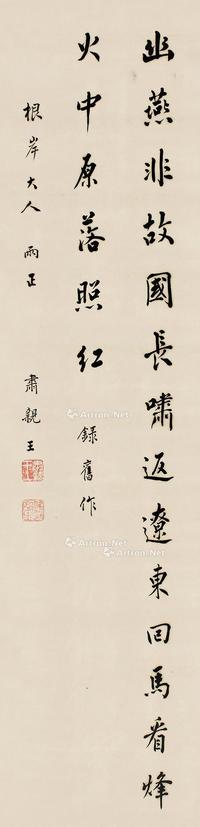 幽燕非故國長嘯返遼東回馬看烽
火中原落照紅 錄舊作
根岸大人 兩正
肅親王
Artron.Net
Artron.Net
Artron.Net
Artron.Net